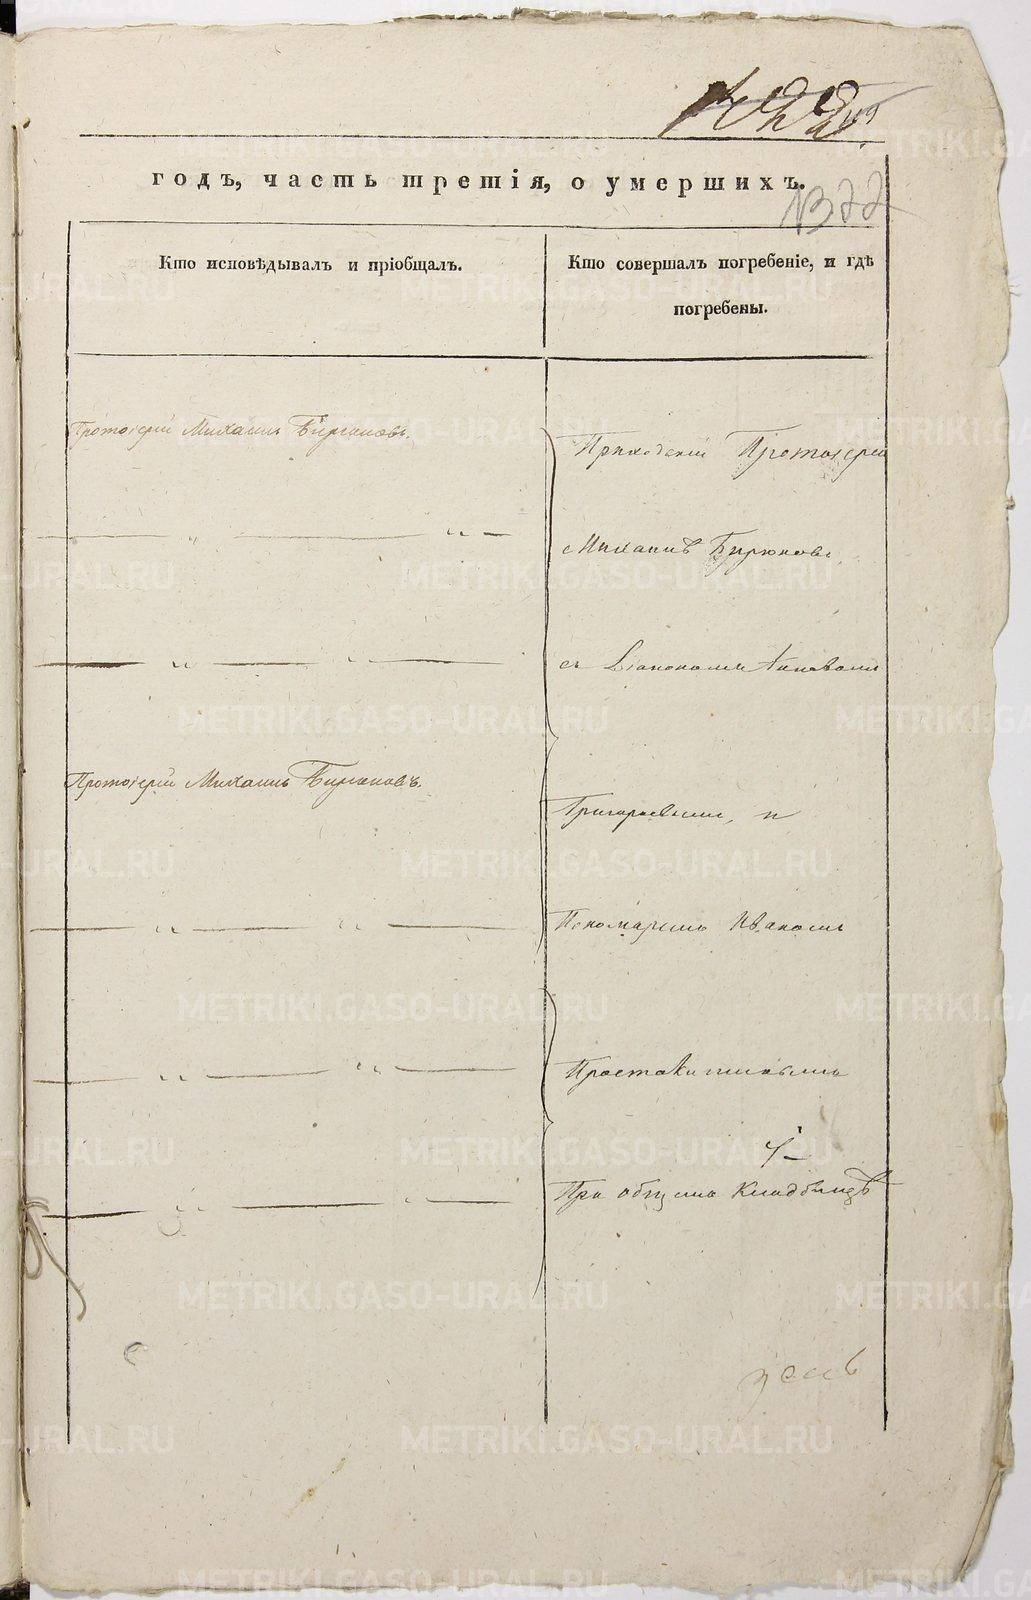 годъ, часть третія, о умершихъ.
1322
Кто исповѣдывалъ и пріобщалъ.
Кто совершалъ погребеніе, и гдѣ
погребены.
Протоіерій Михаилъ Бирюковъ.
Приходскій Протоіерей
Михаилъ Бирюковъ
съ Діакономъ
Протоіерій Михаилъ Бирюковъ.
Григорьевымъ, и
Пономаремъ Иваномъ
На общемъ Кладбищѣ
METRIKI.GASO-URAL.RU